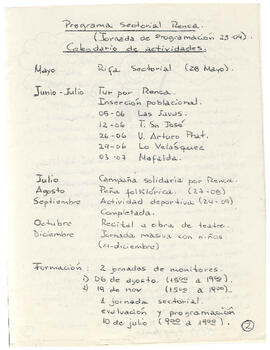 Programa Sectorial Renca.
(Jornada de Programación 23-04)
Calendario de actividades.
Mayo Rifa Sectorial (28 Mayo).
Junio-Julio Tur por Renca.
Inserción poblacional.
05-06 Las Javas.
12-06 T. Sn José
26-06 V. Arturo Prat.
29-06 Lo Velásquez
03-07 Mafalda.
Julio Campaña solidaria por Renca.
Agosto Peña folklórica. (27-08)
Septiembre Actividad deportiva (24-09)
Completada.
Octubre Recital u obra de teatro.
Diciembre Jornada masiva con niños
(11-diciembre)
Formación: 2 jornadas de monitores.
1) 06 de agosto. (15:00 a 19:00)
2) 19 de nov (15:00 a 19:00)
1 jornada sectorial
evaluación y programación
10 de julio (9:00 a 19:00).
2